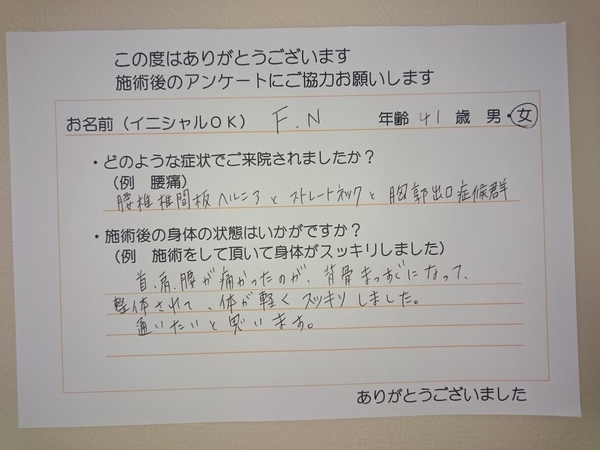 この度はありがとうございます
施術後のアンケートにご協力お願いします
お名前（イニシャルOK） F.N 年齢 41 歳 男・女
・どのような症状でご来院されましたか？
（例 腰痛）
腰椎椎間板ヘルニアとストレートネックと胸郭出口症候群
・施術後の身体の状態はいかがですか？
（例 施術をして頂いて身体がスッキリしました）
首、肩、腰が痛かったのが、背骨まっすぐになって、
整体されて、体が軽くスッキリしました。
通いたいと思います。
ありがとうございました